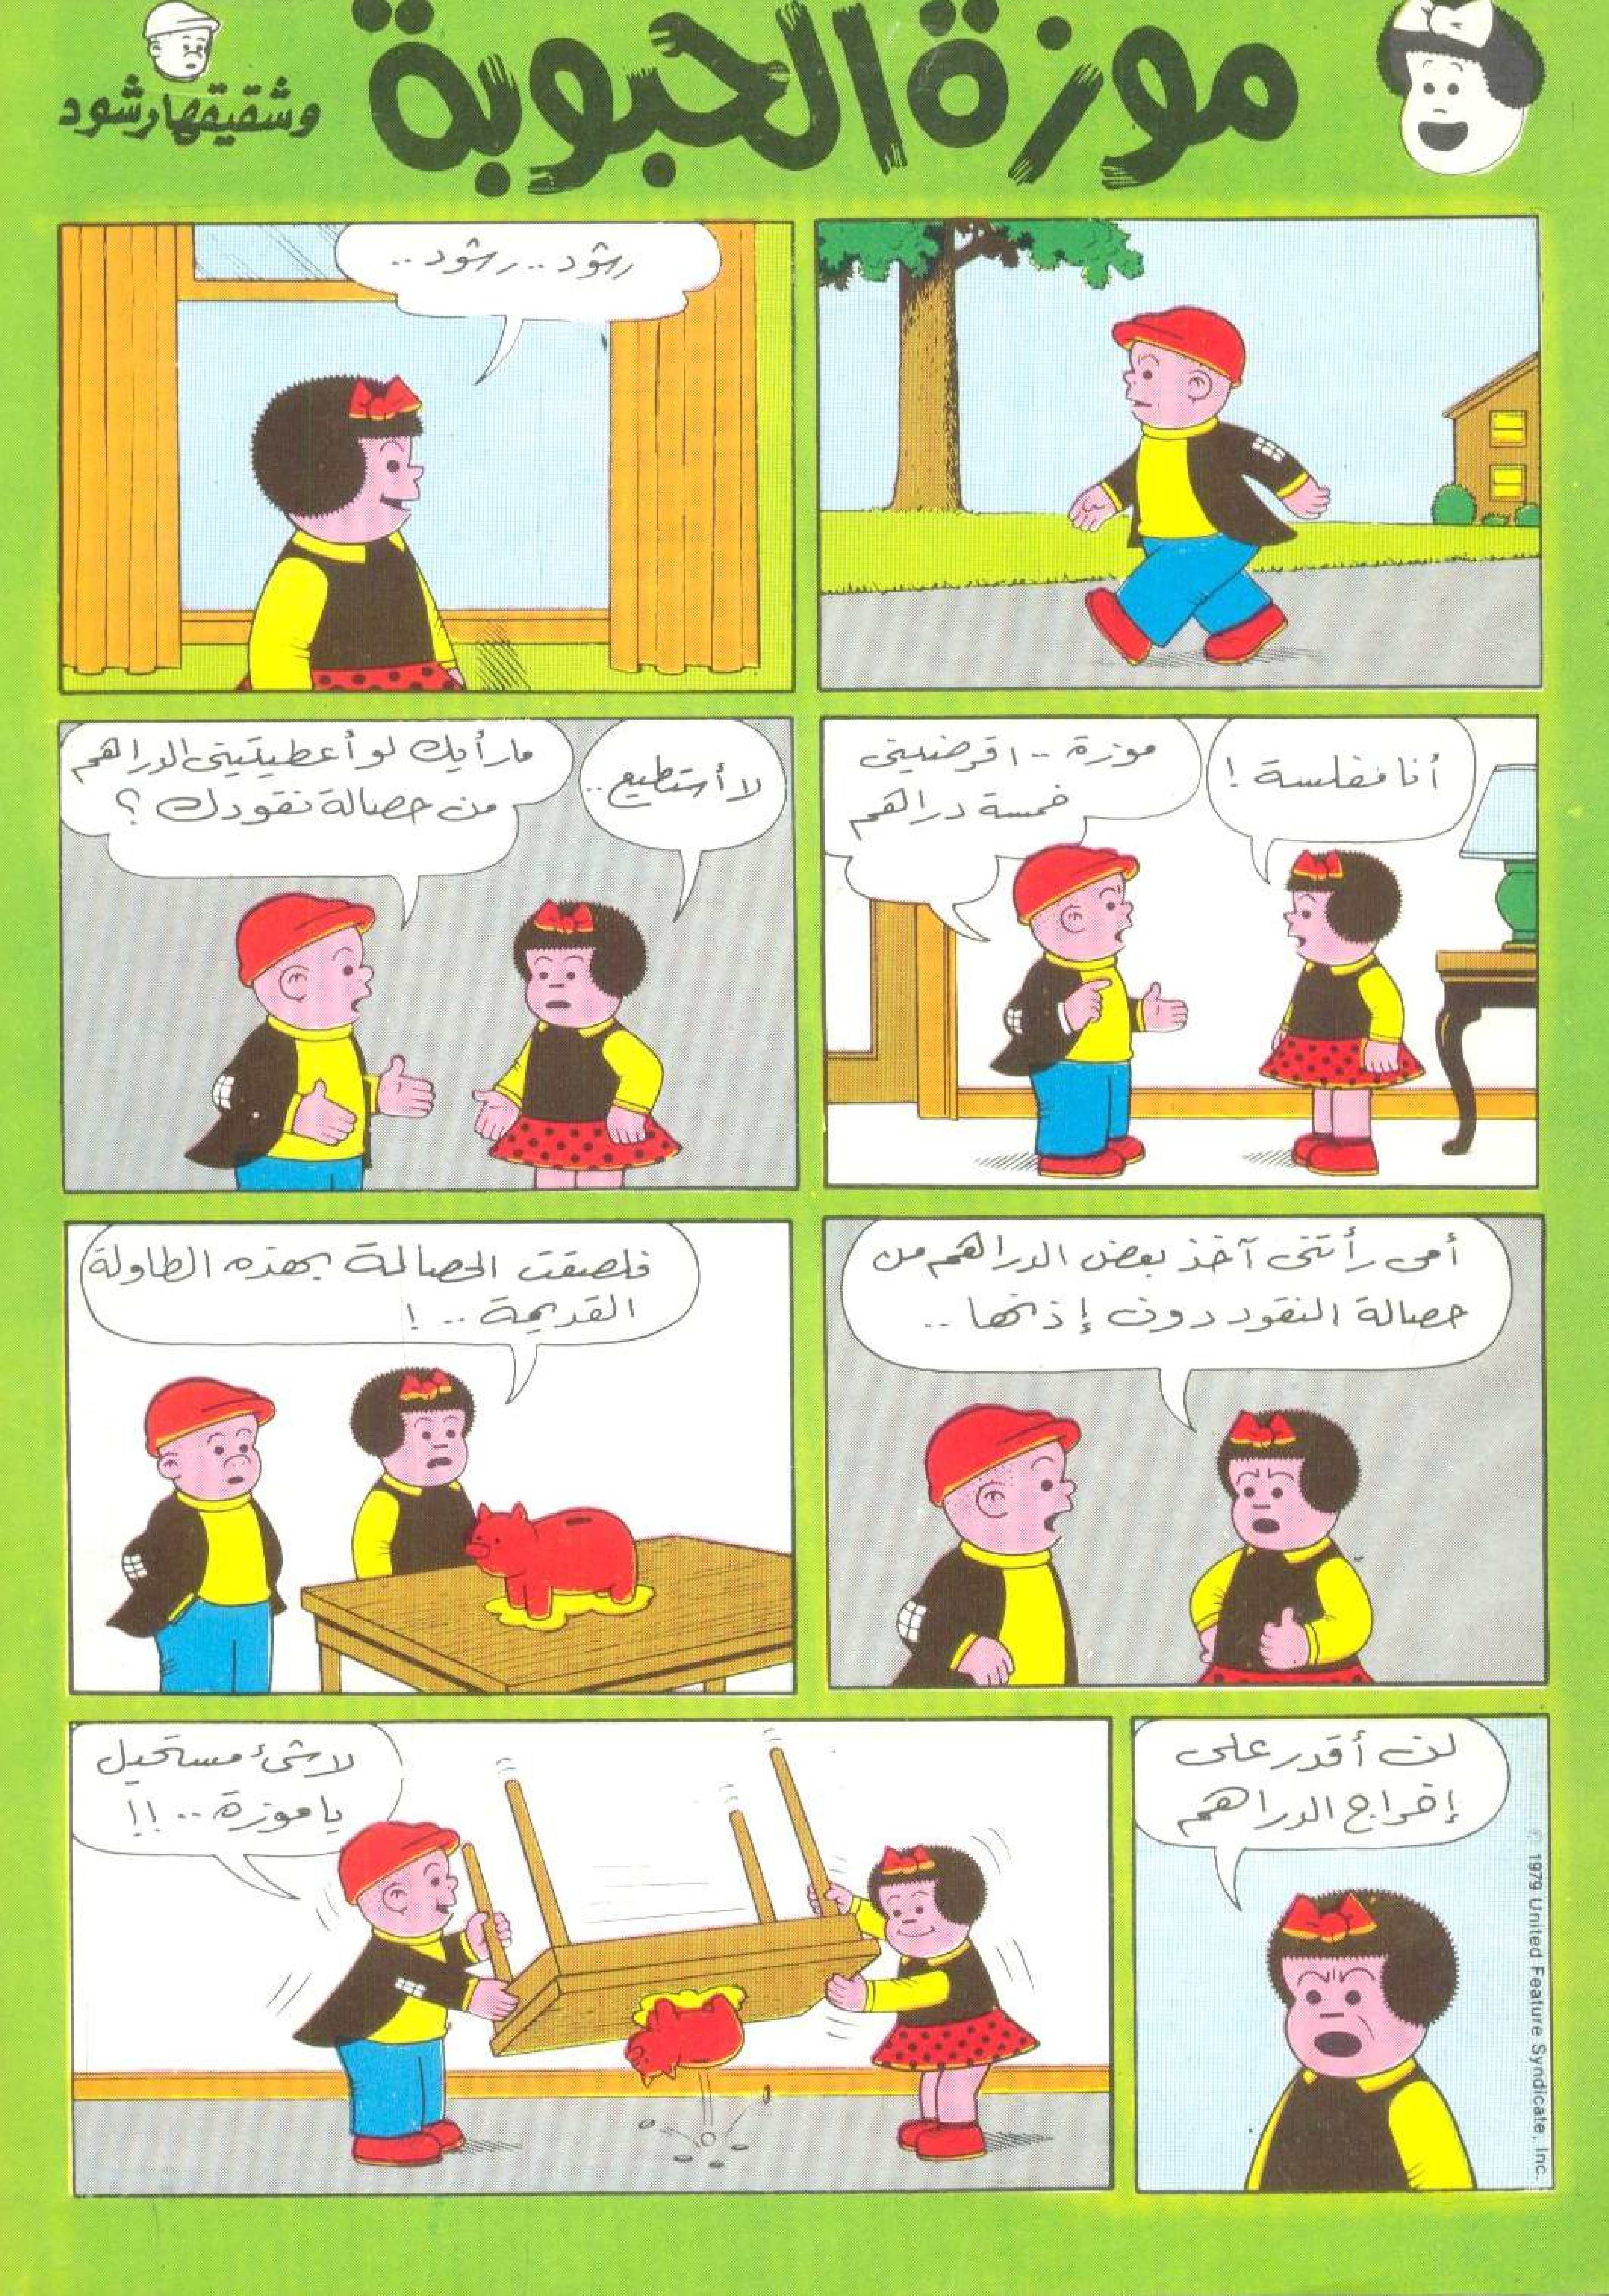 موزة الحبوبة
وشقيقها رشود
رشود.. رشود..
موزة .. اقرضيني
خمسة دراهم
أنا مفلسة !
لا أستطيع..
ما رأيك لو أعطيتيني الدراهم
من حصالة نقودك ؟
أمي رأتني آخذ بعض الدراهم من
حصالة النقود دون إذنها ..
فلصقت الحصالة بهذه الطاولة
القديمة .. !
لن أقدر على
إخراج الدراهم
لا شئ مستحيل
يا موزة .. !!
© 1979 United Feature Syndicate, Inc.